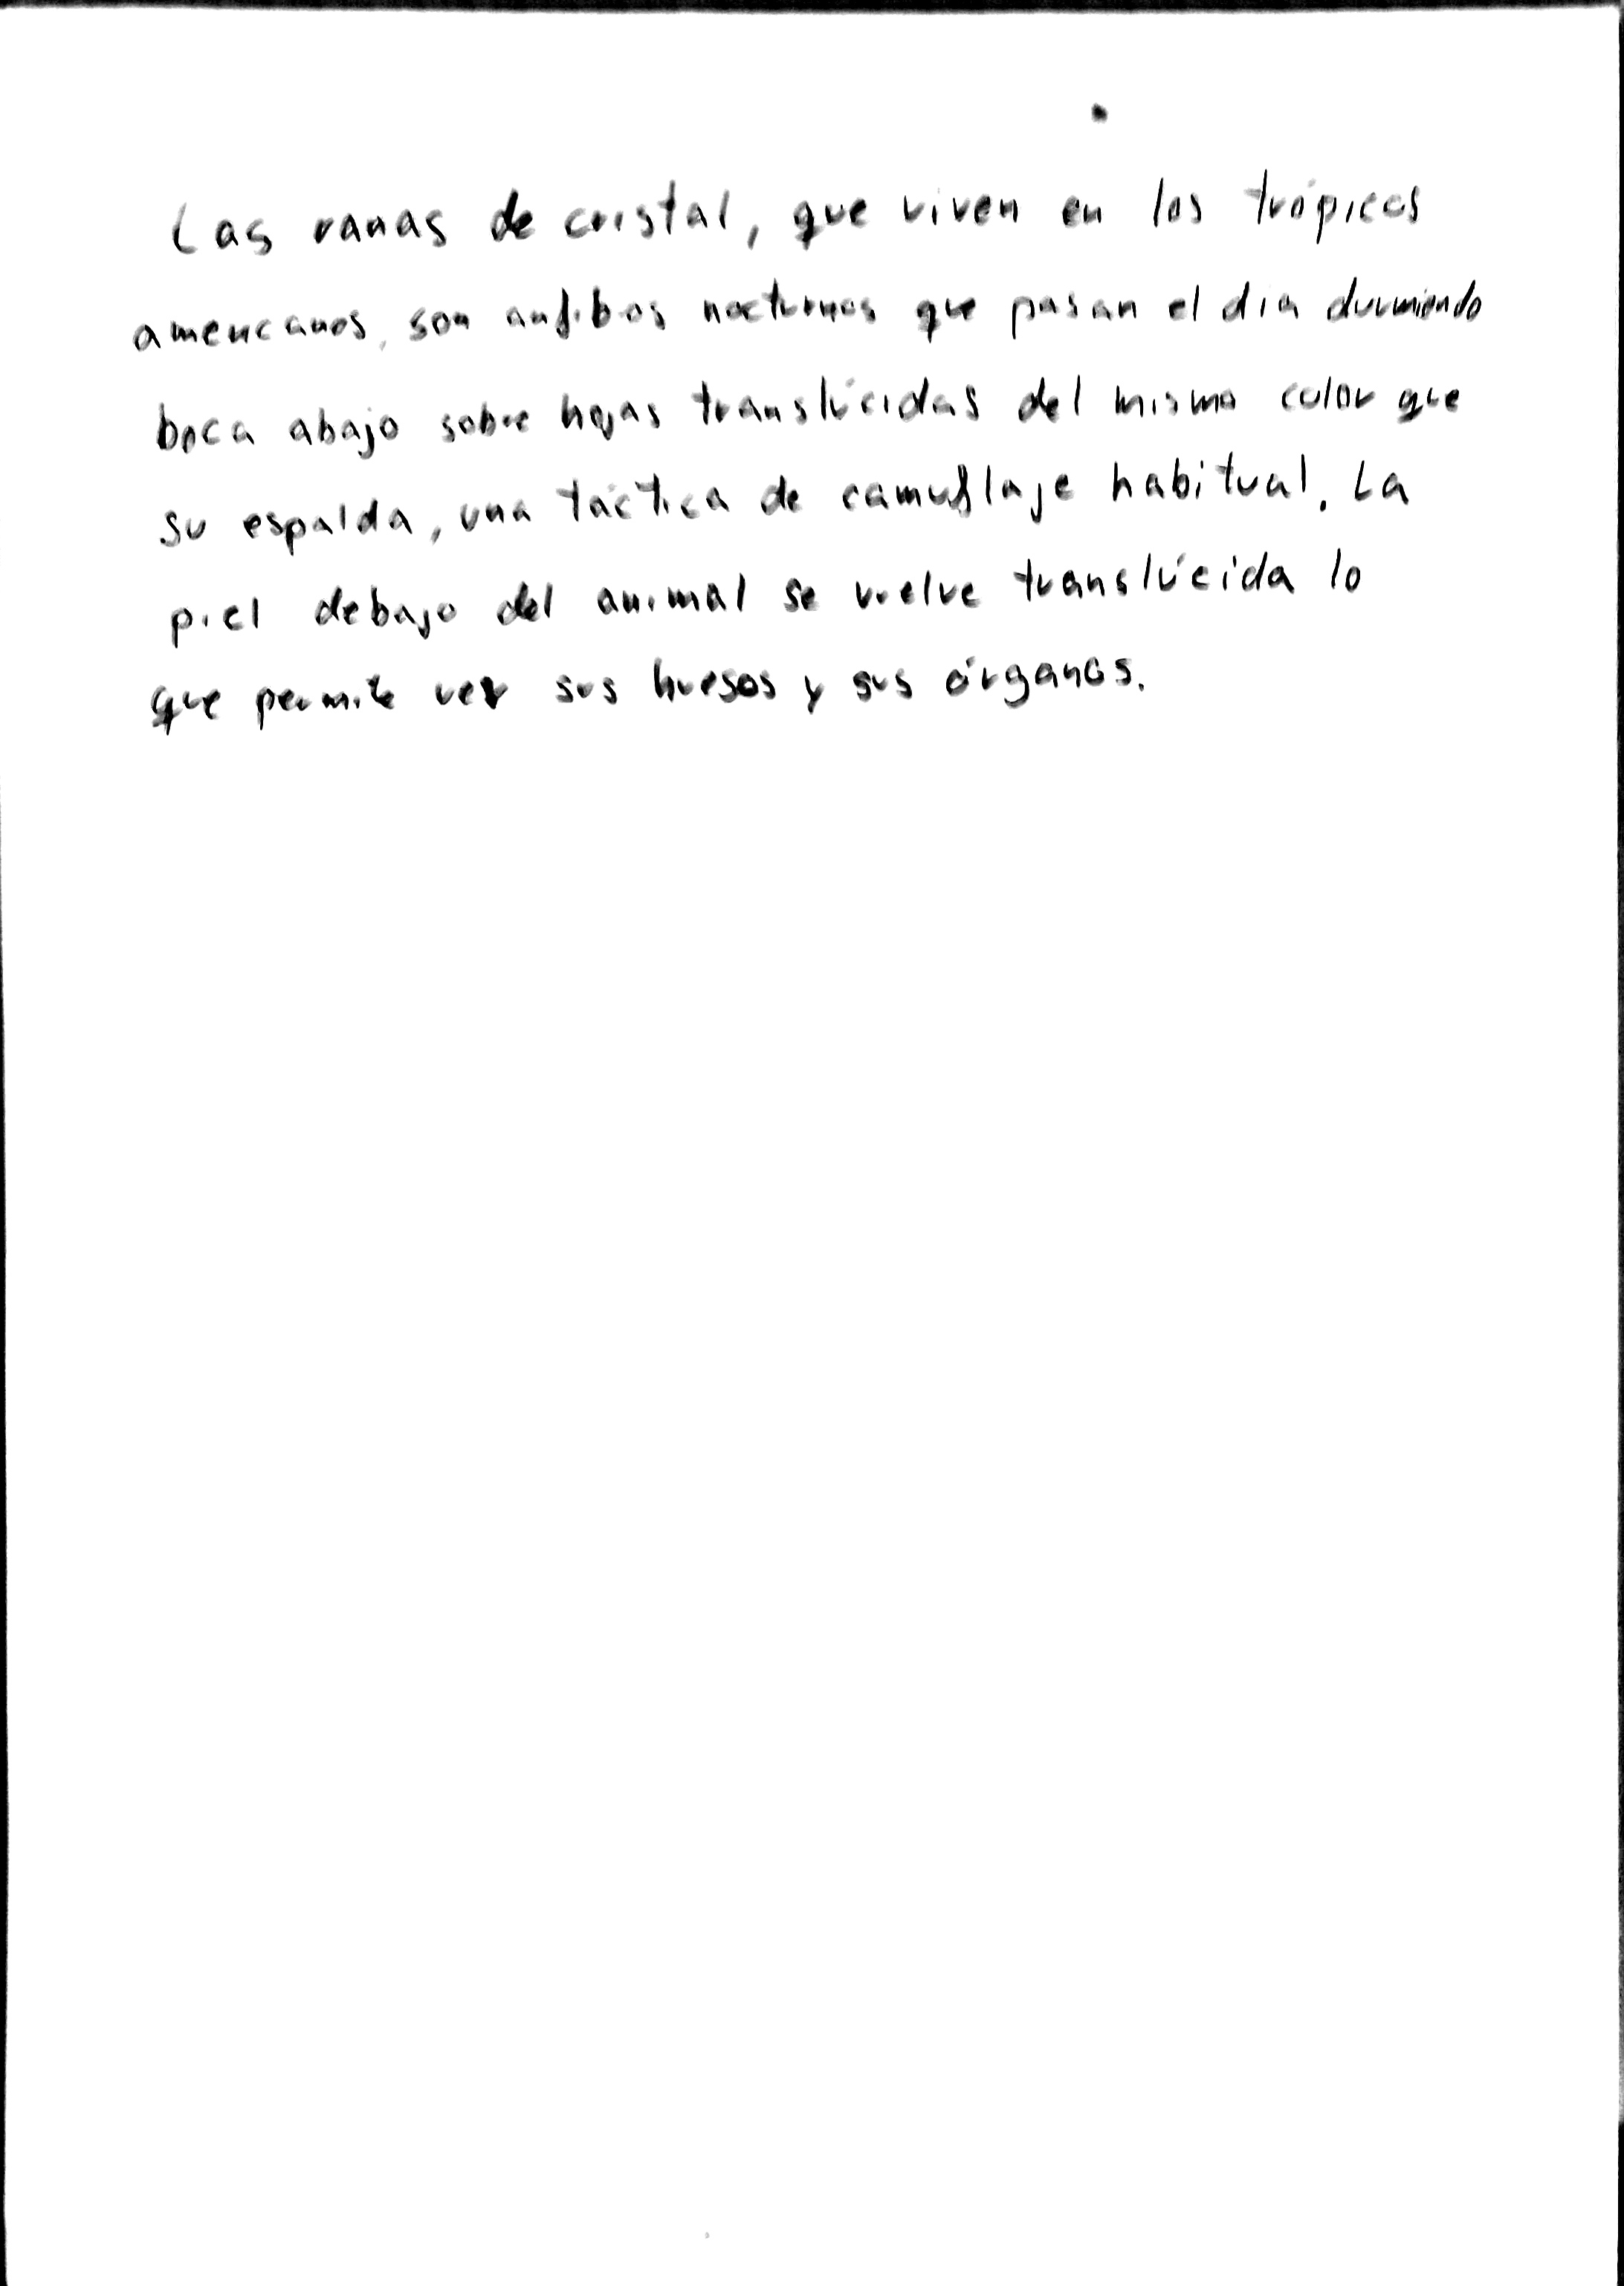 Las ranas de cristal, que viven en los trópicos
americanos, son anfibios nocturnos que pasan el día durmiendo
boca abajo sobre hojas translúcidas del mismo color que
su espalda, una táctica de camuflaje habitual. La
piel debajo del animal se vuelve translúcida lo
que permite ver sus huesos y sus órganos.